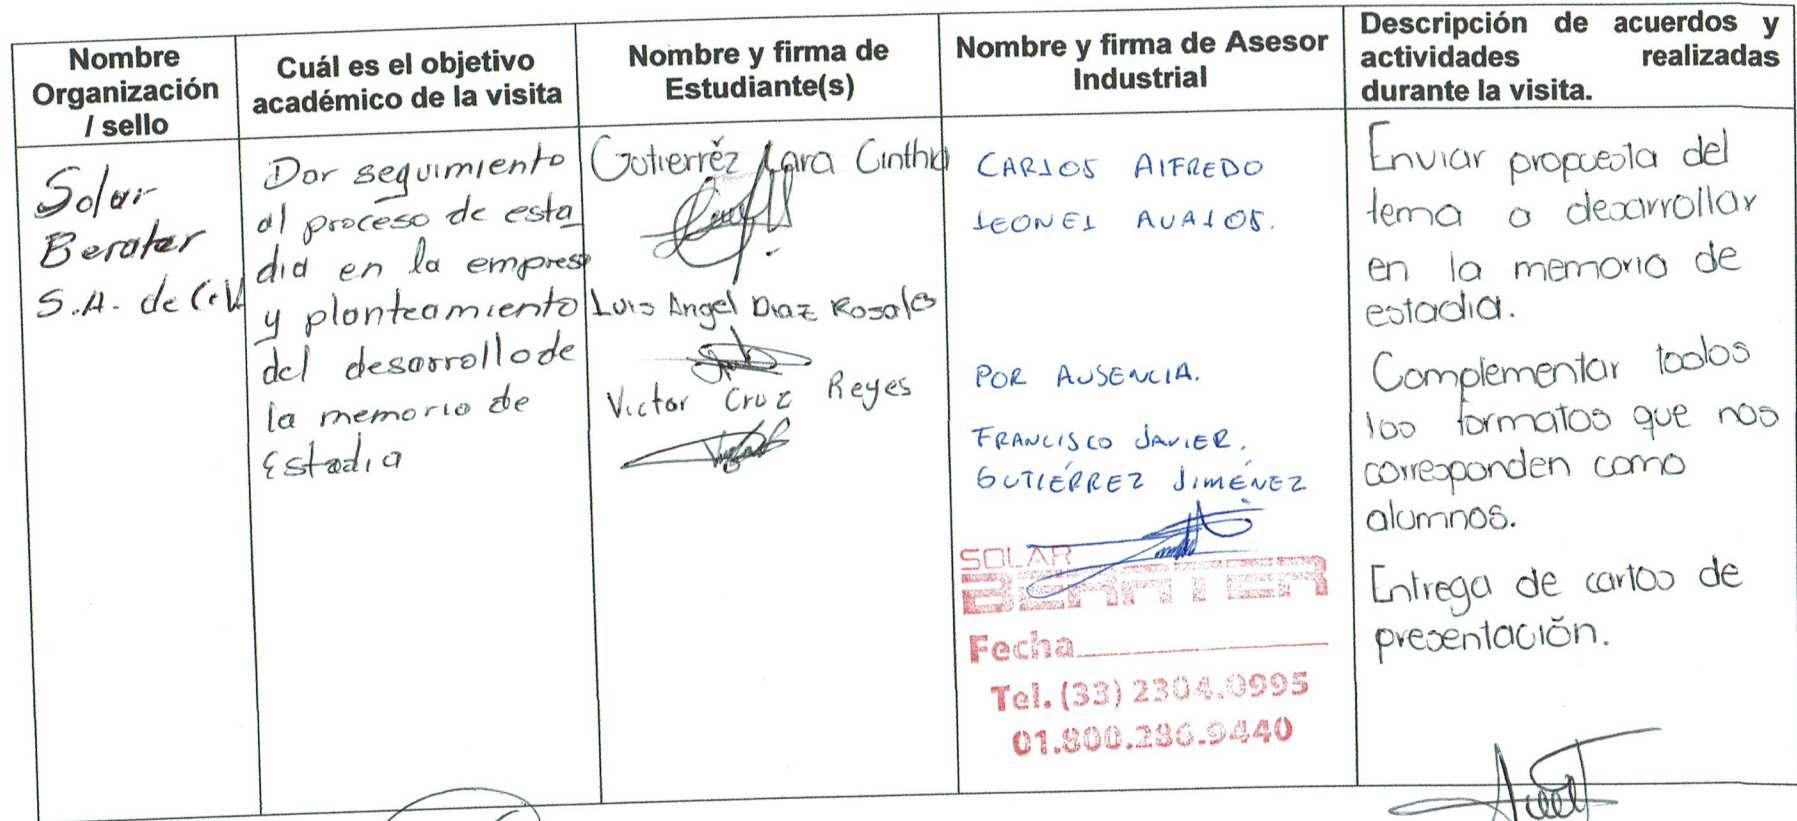 Nombre
Organización
/ sello
Cuál es el objetivo
académico de la visita
Nombre y firma de
Estudiante(s)
Nombre y firma de Asesor
Industrial
Descripción de acuerdos y
actividades realizadas
durante la visita.
Solar
Berater
S.A. de C.V.
Dar seguimiento
al proceso de esta
dia en la empresa
y planteamiento
del desarrollo de
la memoria de
Estadia
Gutierrez Lara Cinthia
Luis Angel Diaz Rosales
Victor Cruz Reyes
CARLOS ALFREDO
LEONEL AVALOS.
POR AUSENCIA.
FRANCISCO JAVIER.
GUTIÉRREZ JIMÉNEZ
SOLAR
BERATER
Fecha
Tel. (33) 2304.0995
01.800.286.9440
Enviar propuesta del
tema a desarrollar
en la memoria de
estadia.
Complementar todos
los formatos que nos
corresponden como
alumnos.
Entrega de cartas de
presentación.